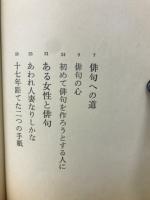 7 俳句への道
9 俳句の心
24 初めて俳句を作ろうとする人に
31 ある女性と俳句
あわれ人妻なりしかな
十七年距てた二つの手紙